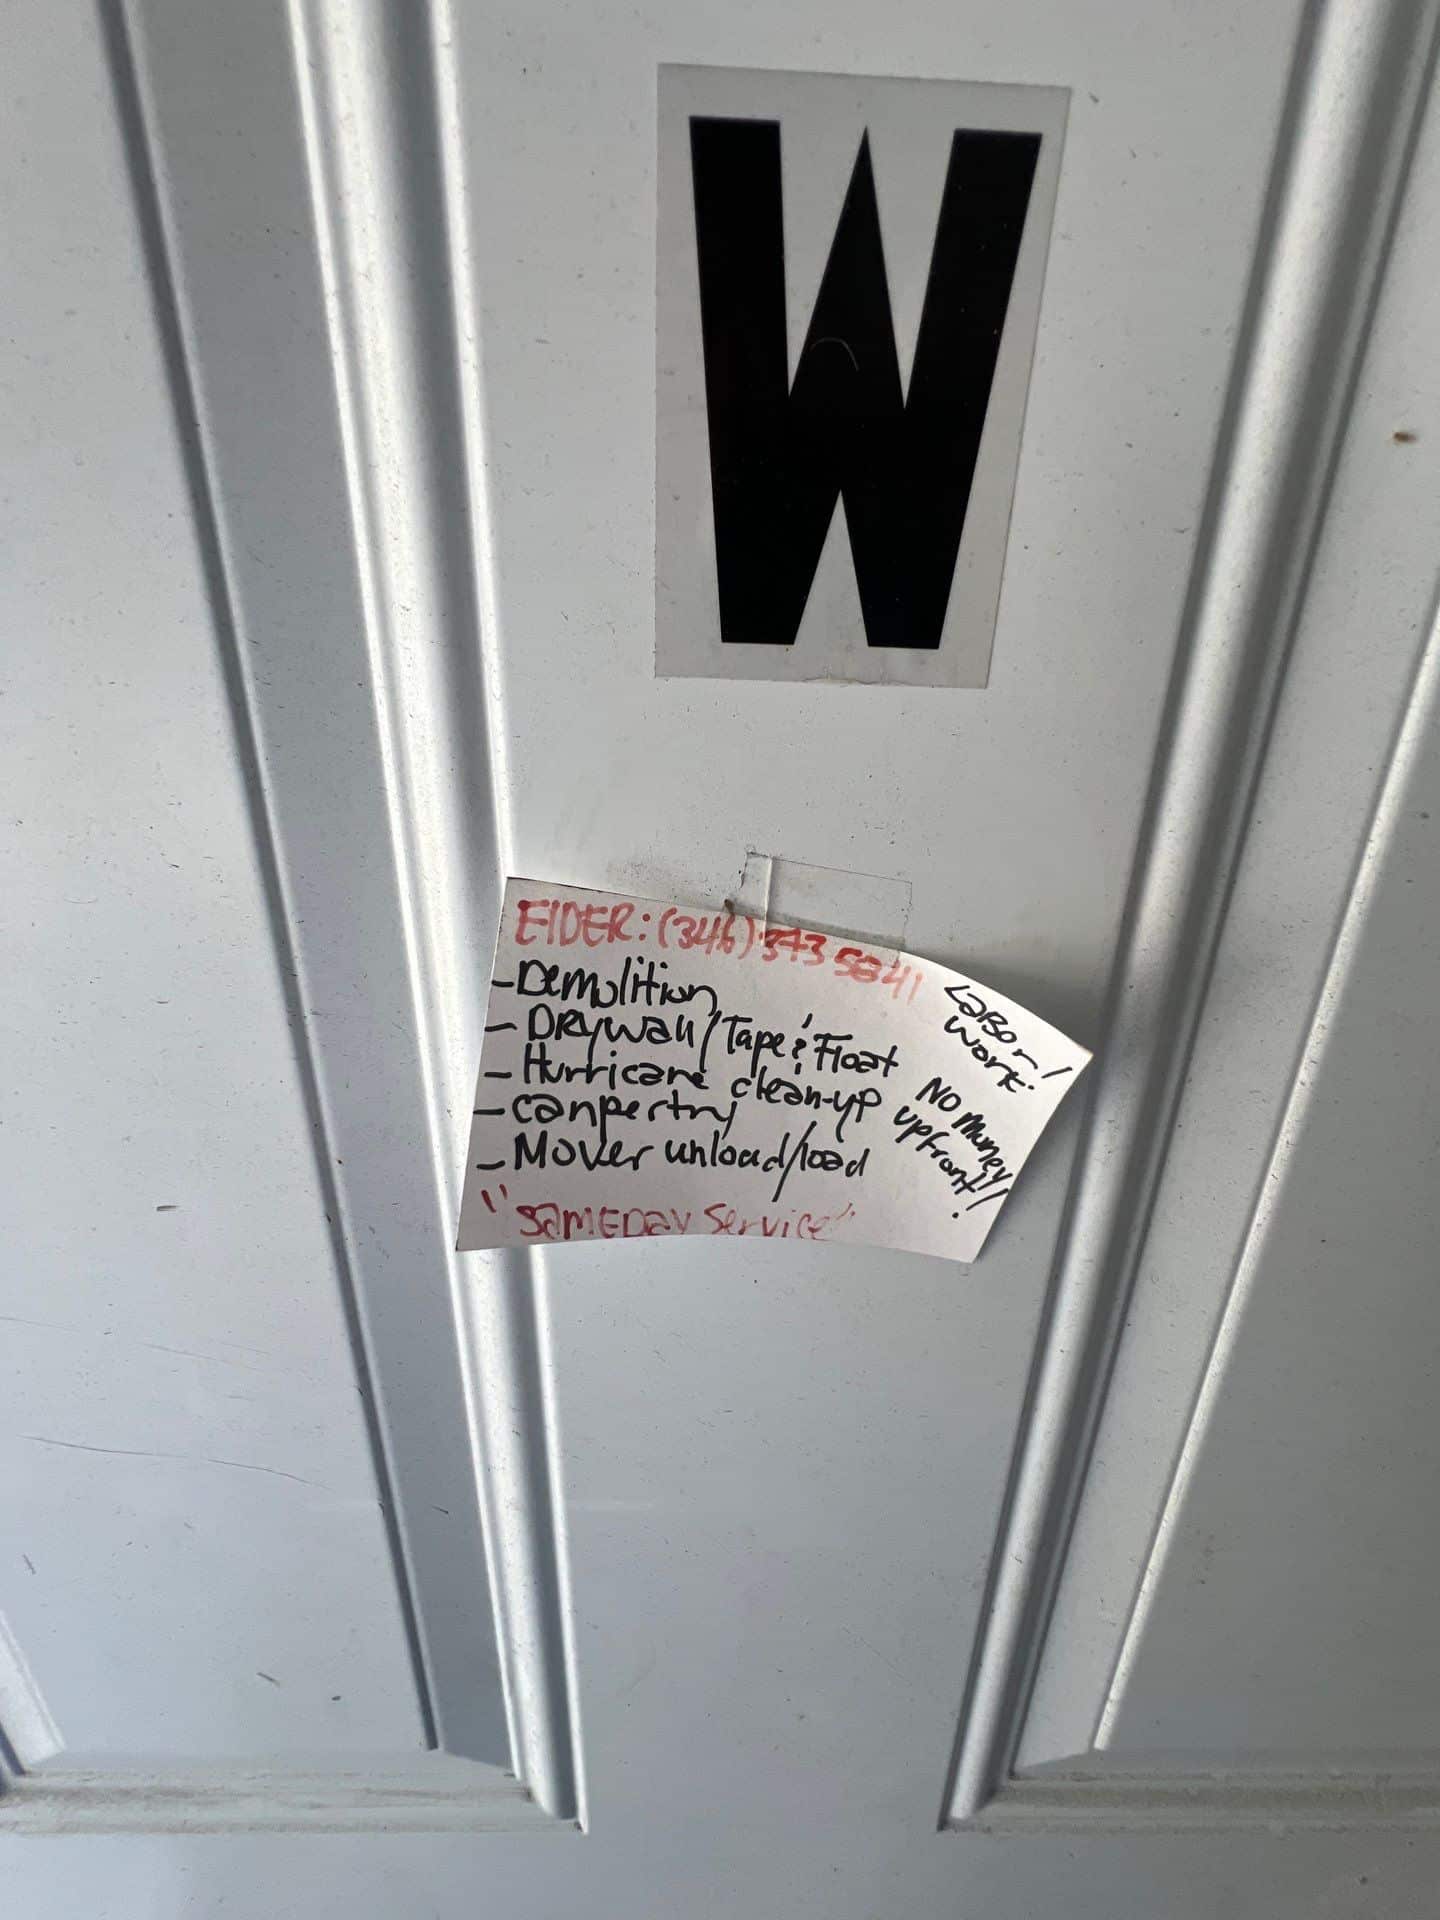 W
EIDER: (346) 373 5841
- Demolition
- DRYWall / Tape & Float
- Hurricane clean-up
- canpertry
- Mover unload/load
"SAMEDAY Service"
LABOr
Work!
NO Money
upfront!